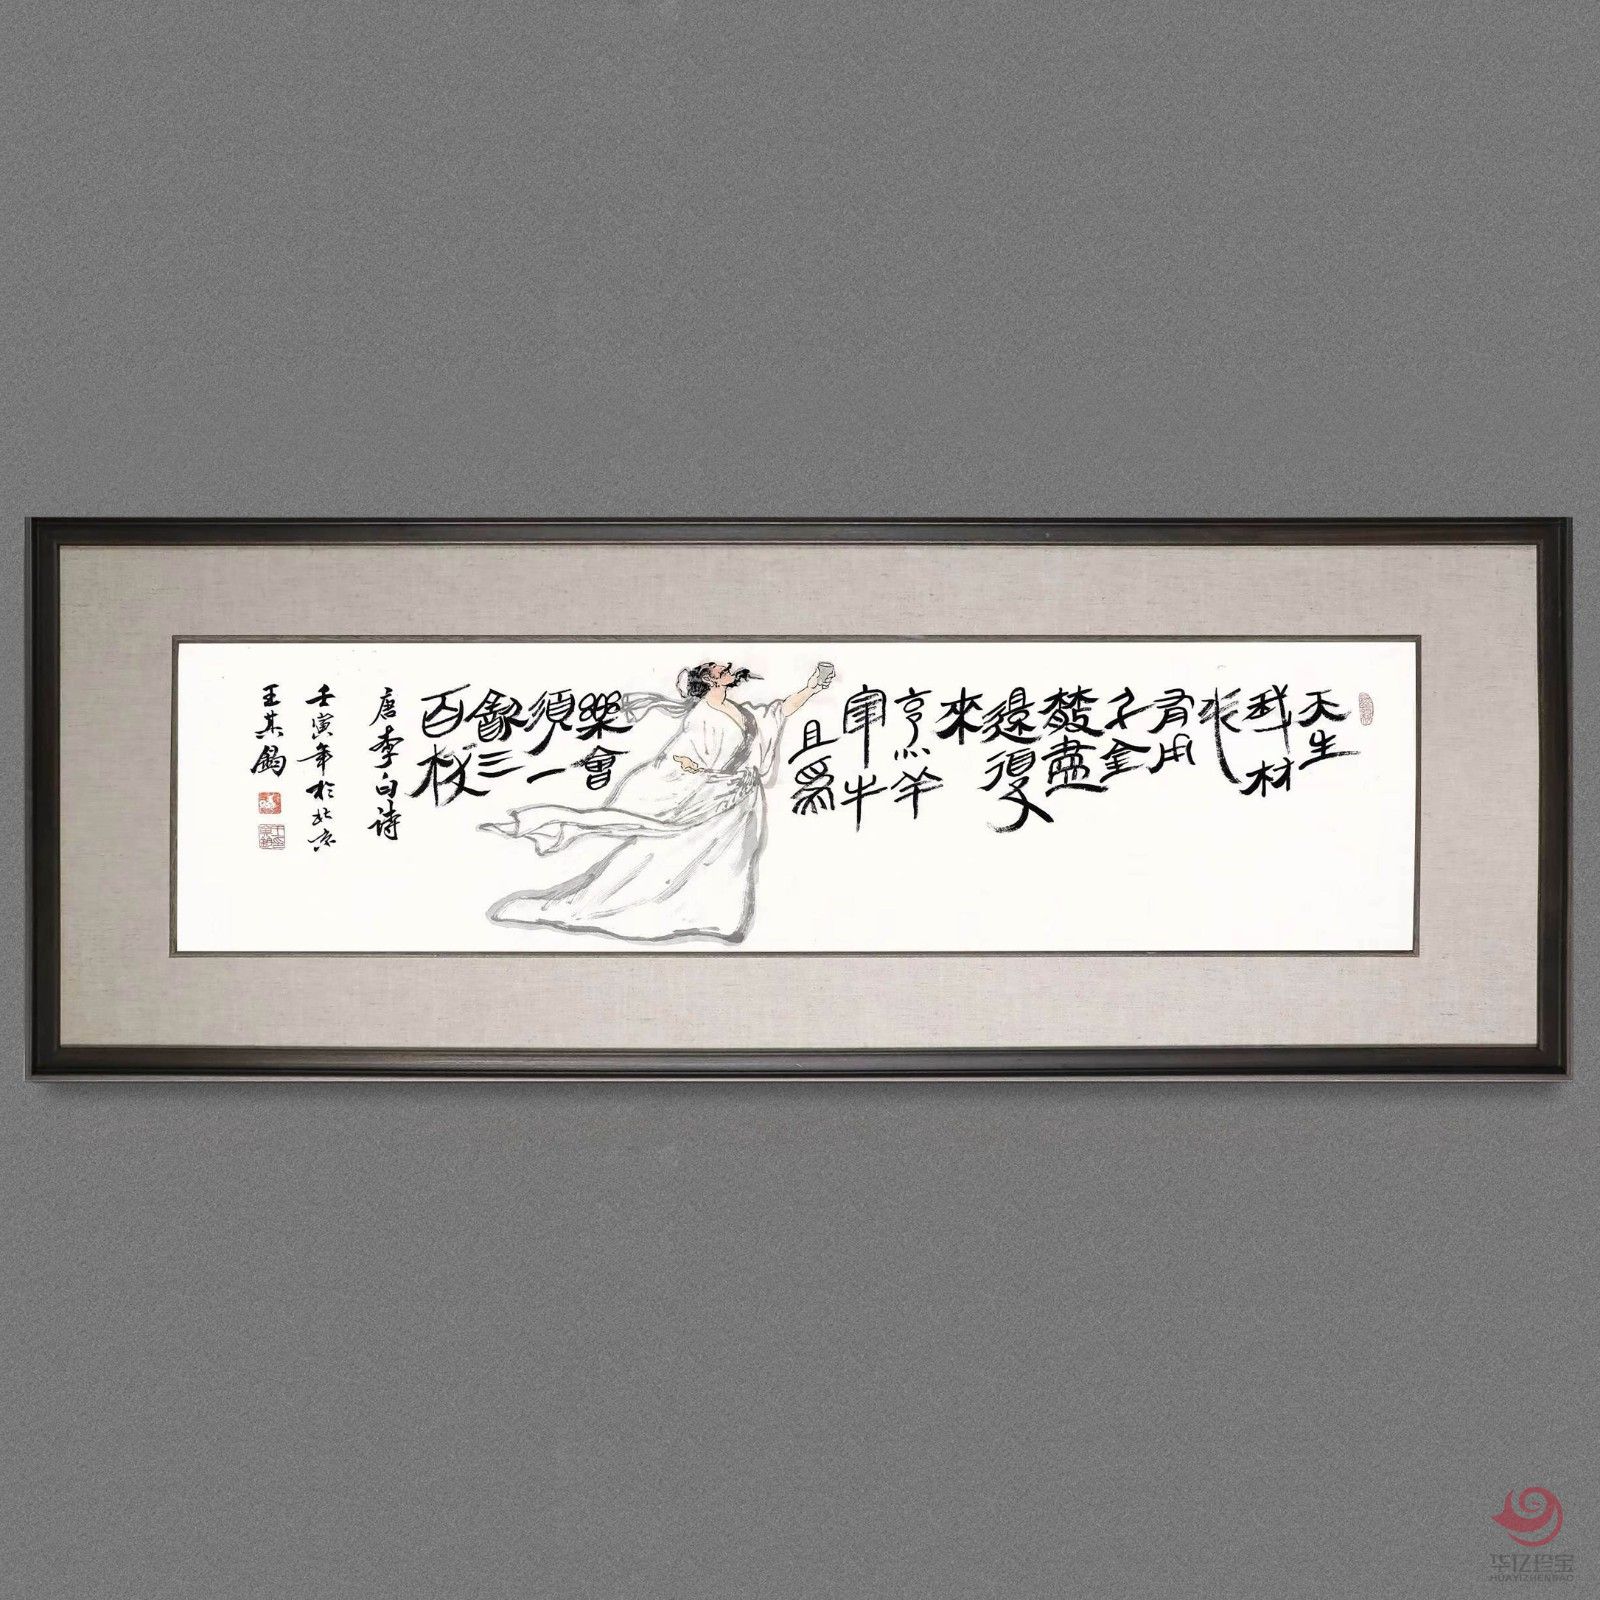 天生
我材
必
有用
千金
散盡
還復
來
烹羊
宰牛
且爲
樂會
須一
飲三
百杯
唐李白诗
壬寅年於北京
王其鈞
华亿珍宝
HUAYIZHENBAO